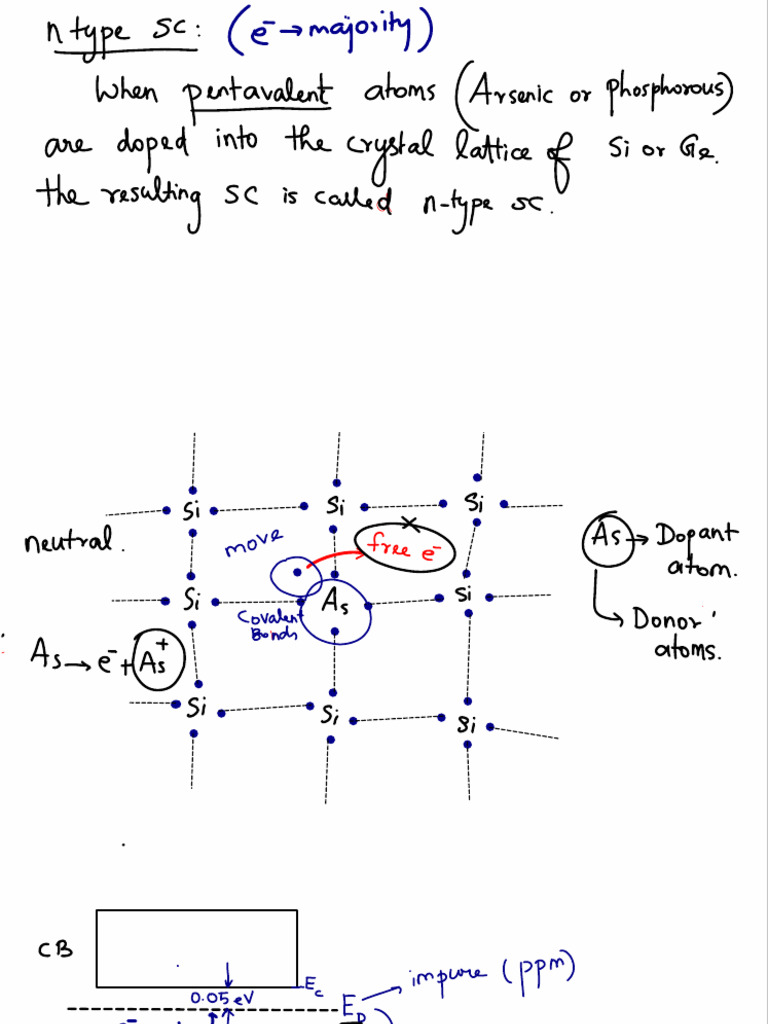 n type SC: (e⁻ → majority)
When pentavalent atoms (Arsenic or phosphorous)
are doped into the crystal lattice of Si or Ge.
the resulting SC is called n-type SC.
Si Si Si
neutral. move free e⁻ As → Dopant
atom.
Si As Si
Covalent
Bonds
Donor
atoms.
As → e⁻ + As⁺
Si Si Si
CB
impure (ppm)
Ec
0.05 eV
ED